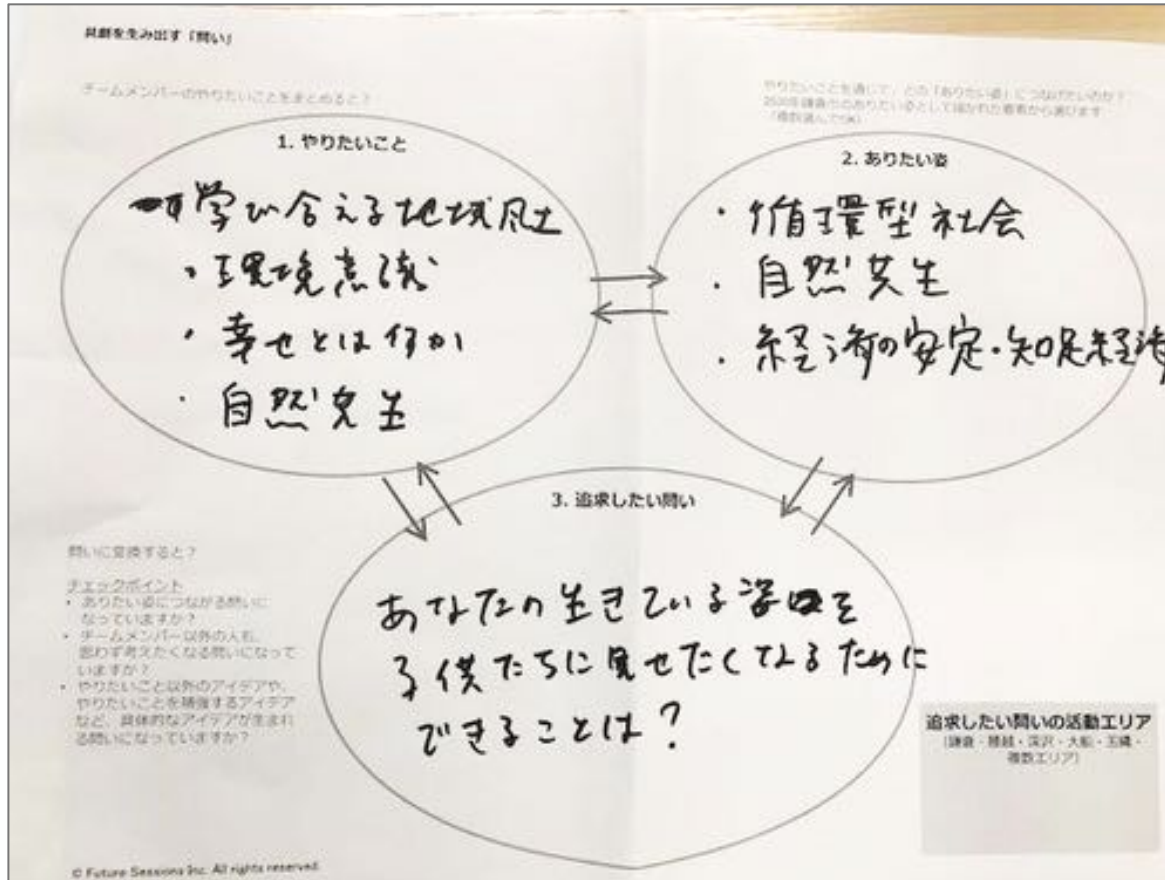 共創を生み出す「問い」
チームメンバーのやりたいことをまとめると？
やりたいことを通じて、どの「ありたい姿」につなげたいのか？
2030年鎌倉市のありたい姿として描かれた要素から選びます
（複数選んでOK）
1. やりたいこと
学び合える地域風土
・環境意識
・幸せとは何か
・自然共生
2. ありたい姿
・循環型社会
・自然共生
・経済の安定・知足経済
3. 追求したい問い
あなたの生きている姿を
子供たちに見せたくなるために
できることは？
問いに変換すると？
チェックポイント
・ありたい姿につながる問いに
なっていますか？
・チームメンバー以外の人も、
思わず考えたくなる問いになって
いますか？
・やりたいこと以外のアイデアや、
やりたいことを補強するアイデア
など、具体的なアイデアが生まれ
る問いになっていますか？
追求したい問いの活動エリア
（鎌倉・腰越・深沢・大船・玉縄・
複数エリア）
© Future Sessions Inc. All rights reserved.